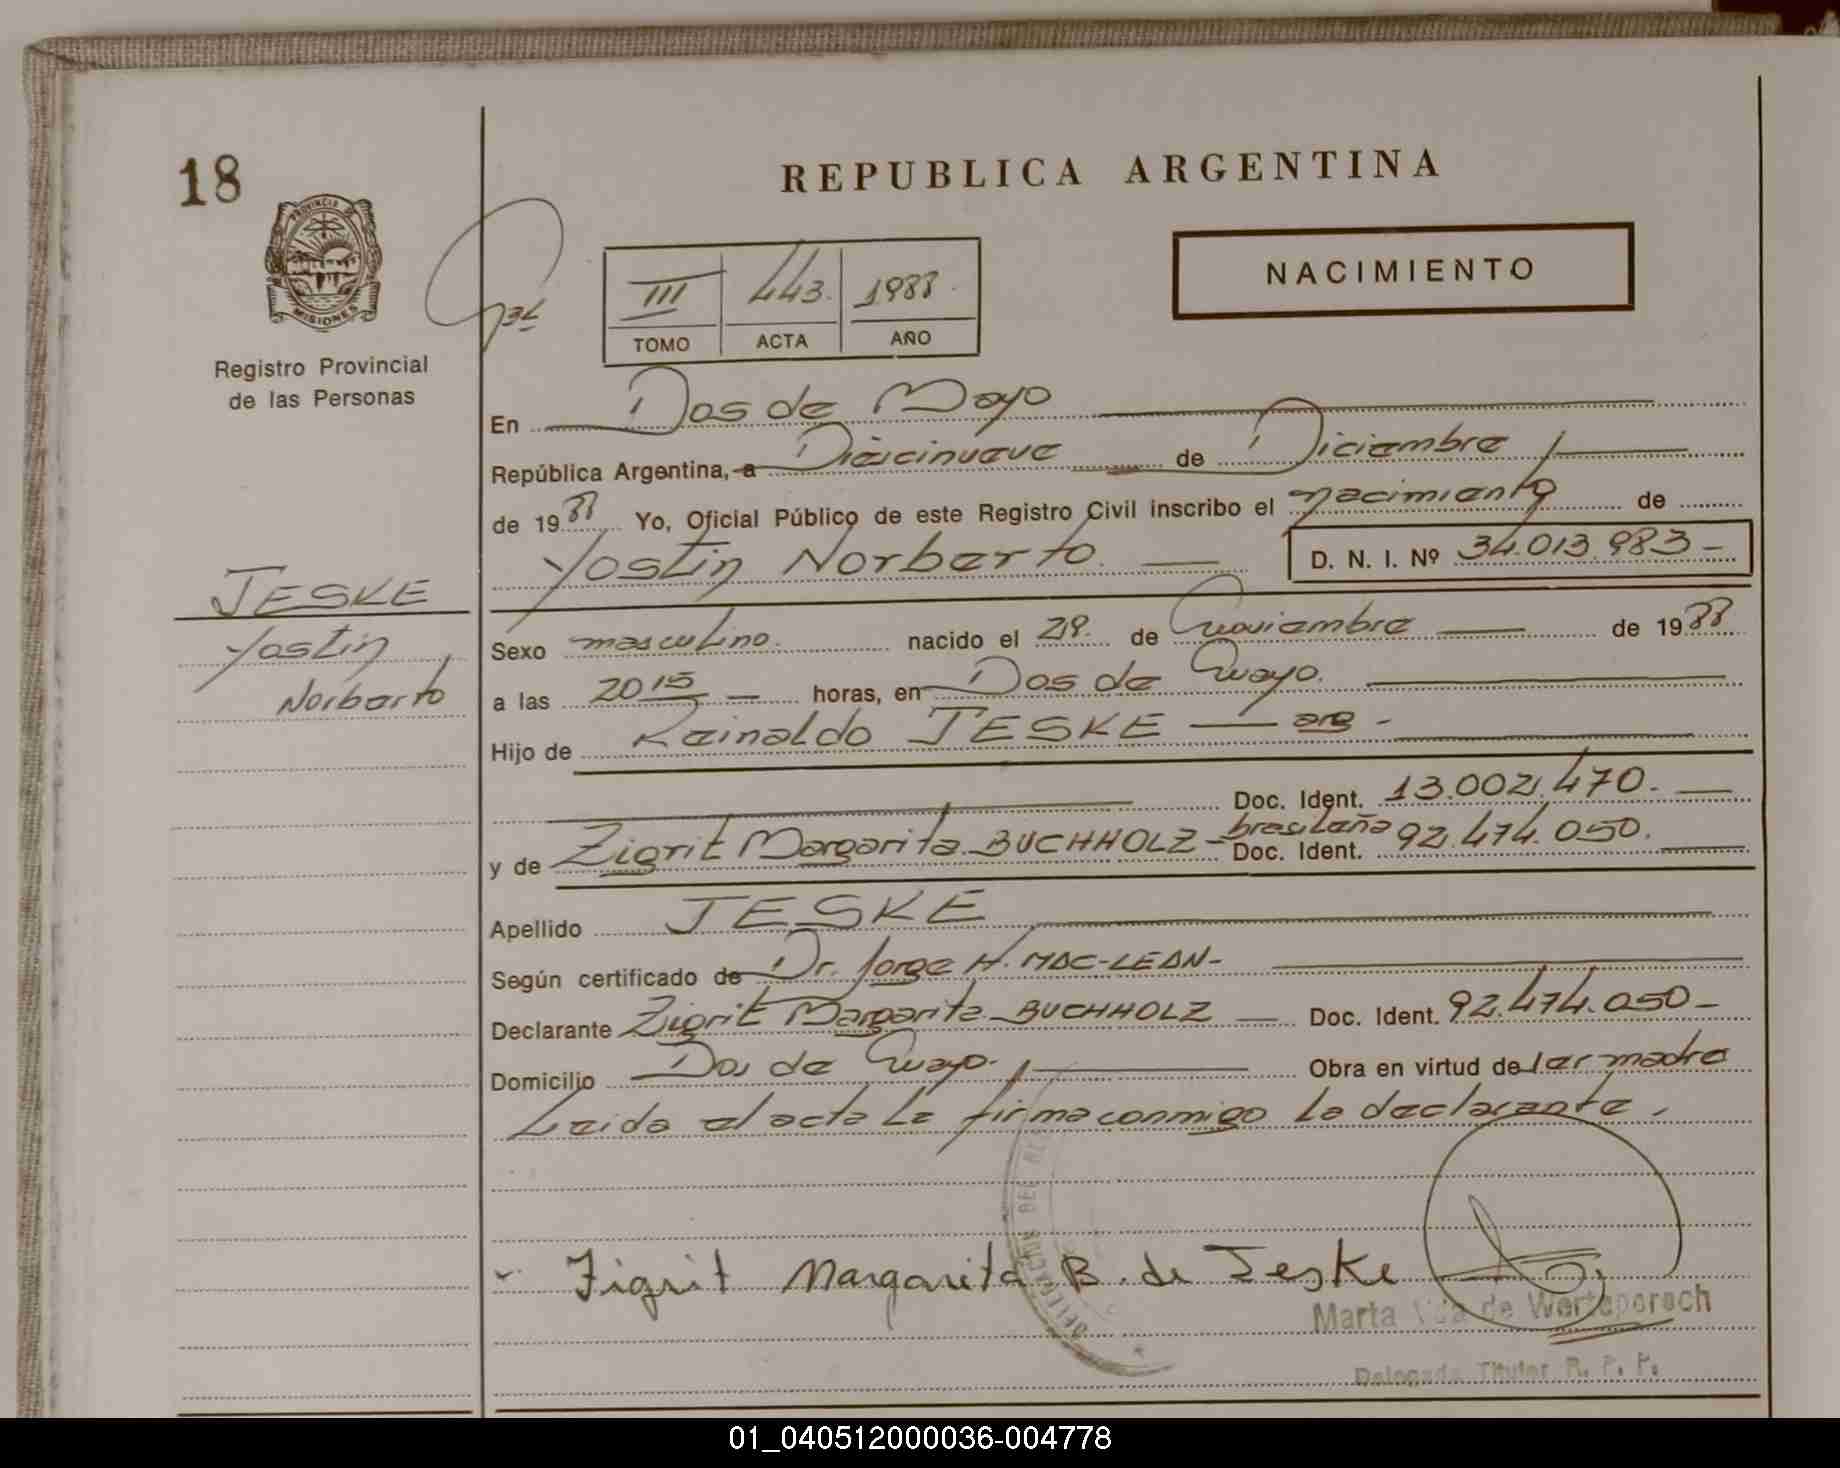 18
REPUBLICA ARGENTINA
PROVINCIA DE
MISIONES
NACIMIENTO
III 443. 1988.
TOMO ACTA AÑO
Registro Provincial
de las Personas
En Dos de Mayo
República Argentina, a Diecinueve de Diciembre
de 1988 Yo, Oficial Público de este Registro Civil inscribo el nacimiento de
Yostin Norberto. D. N. I. Nº 34.013.983-
JESKE
Yostin
Norberto
Sexo masculino. nacido el 29. de Noviembre de 1988
a las 2015 horas, en Dos de Mayo.
Hijo de Reinaldo JESKE arg-
Doc. Ident. 13.002.470.
y de Zigrit Margarita BUCHHOLZ- brasileña Doc. Ident. 92.474.050.
Apellido JESKE
Según certificado de Dr. Jorge H. MAC-LEAN-
Declarante Zigrit Margarita BUCHHOLZ Doc. Ident. 92.474.050-
Domicilio Dos de Mayo. Obra en virtud de ser madre
Leida el acta la firma conmigo la declarante.
Zigrit Margarita B. de Jeske
Marta Vda de
Delegada Titular R. P. P.
01_040512000036-004778